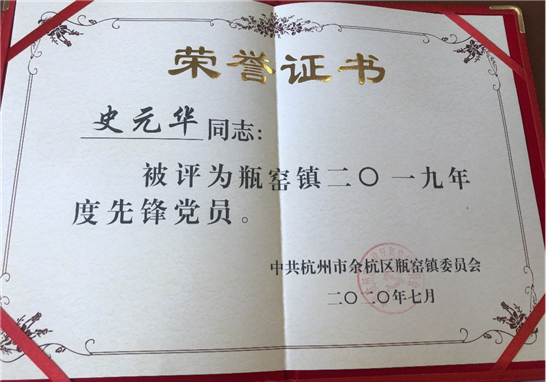 荣誉证书
史元华同志：
被评为瓶窑镇二〇一九年
度先锋党员。
中共杭州市余杭区瓶窑镇委员会
二〇二〇年七月